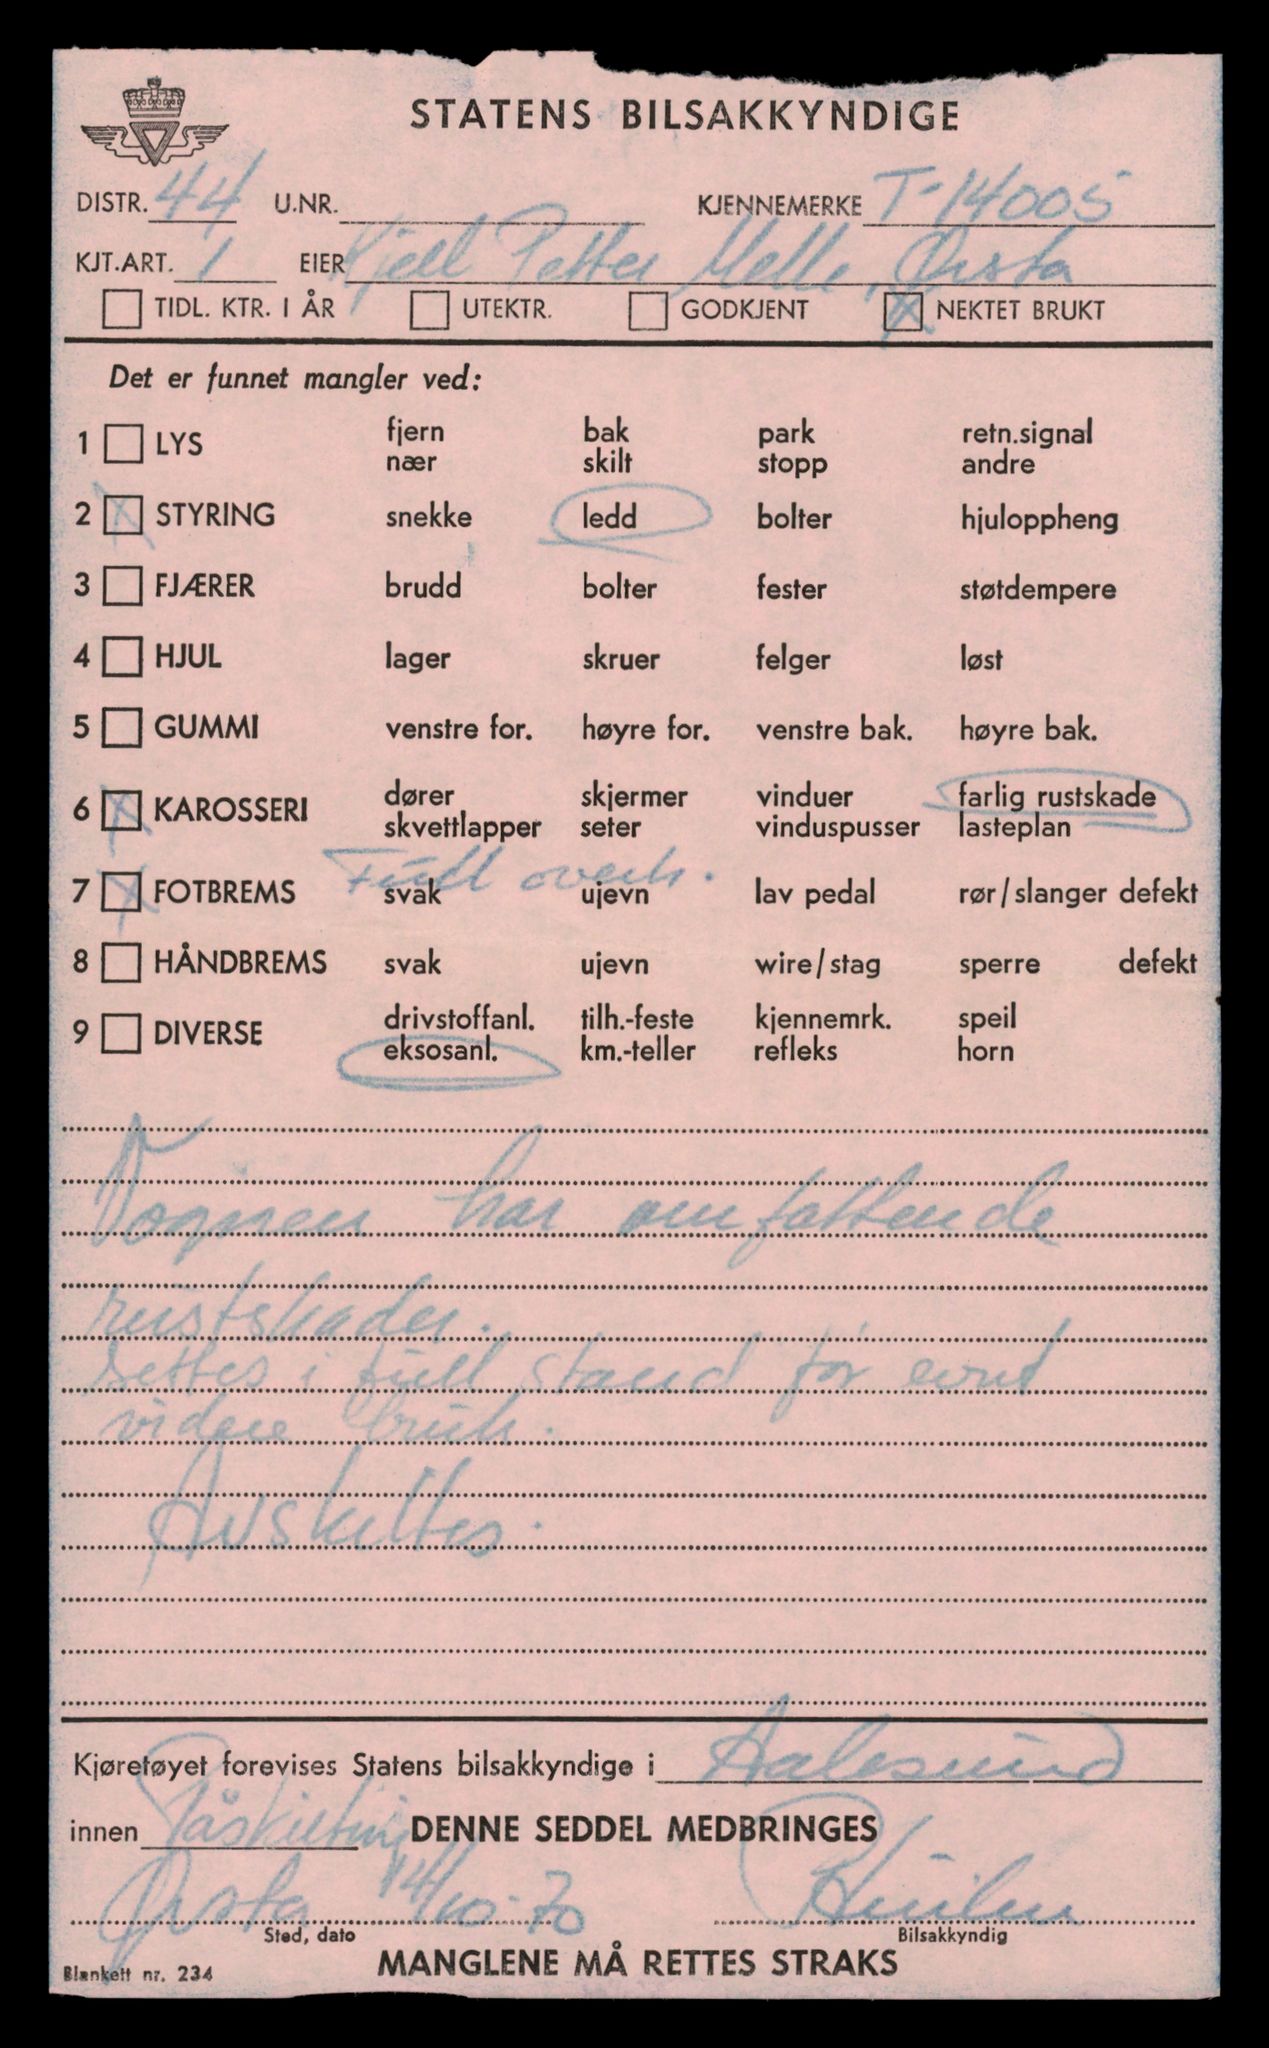 STATENS BILSAKKYNDIGE
DISTR. 44 U.NR. KJENNEMERKE T-14005
KJT.ART. 1 EIER Kjell Petter Melle, Ørsta
TIDL. KTR. I ÅR UTEKTR. GODKJENT X NEKTET BRUKT
Det er funnet mangler ved:
1 LYS fjern bak park retn.signal
nær skilt stopp andre
2 X STYRING snekke ledd bolter hjuloppheng
3 FJÆRER brudd bolter fester støtdempere
4 HJUL lager skruer felger løst
5 GUMMI venstre for. høyre for. venstre bak. høyre bak.
6 X KAROSSERI dører skjermer vinduer farlig rustskade
skvettlapper seter vinduspusser lasteplan
Full overh.
7 X FOTBREMS svak ujevn lav pedal rør/slanger defekt
8 HÅNDBREMS svak ujevn wire/stag sperre defekt
9 DIVERSE drivstoffanl. tilh.-feste kjennemrk. speil
eksosanl. km.-teller refleks horn
Vognen har omfattende
rustskader.
settes i full stand for evnt
videre bruk.
Avskiltes.
Kjøretøyet forevises Statens bilsakkyndige i Aalesund
innen Påskilting DENNE SEDDEL MEDBRINGES
Ørsta 14/10-70
Sted, dato Bilsakkyndig
Blankett nr. 234 MANGLENE MÅ RETTES STRAKS